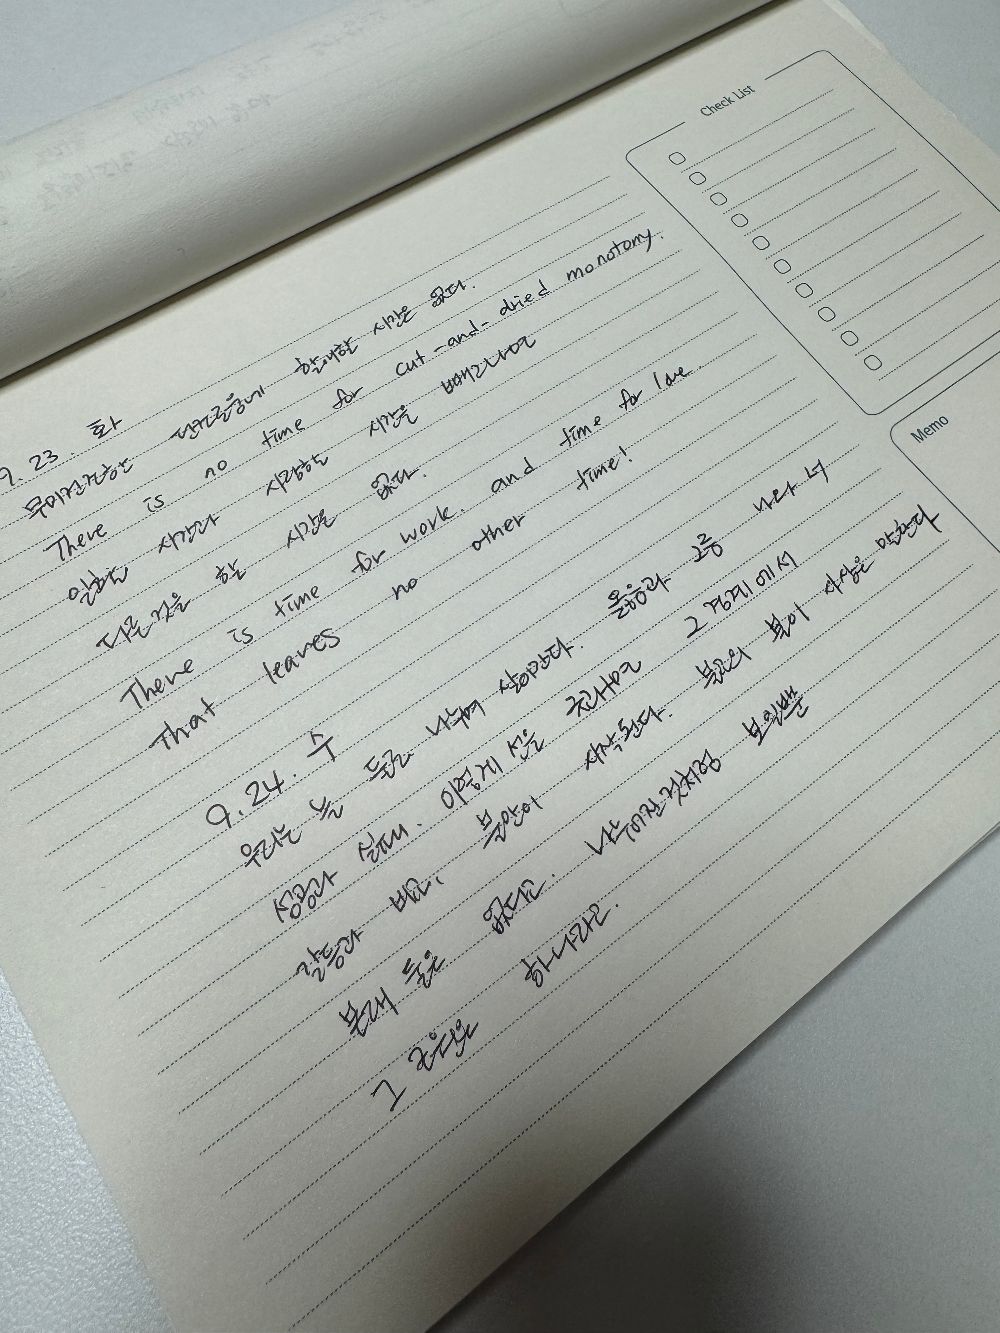 Check List
Memo
9. 23. 화
무미건조한 단조로움에 할애할 시간은 없다.
There is no time for cut-and-dried monotomy.
일할 시간과 사랑할 시간을 빼고나면
다른것을 할 시간은 없다.
There is time for work. and time for love.
That leaves no other time!
9. 24. 수
우리는 늘 둘로 나누며 살아간다. 옳음과 그름 나와 너
성공과 실패. 이렇게 선을 긋하고 그 경계에서
갈등과 비교, 불안이 시작된다. 붓다의 불이 사상은 말한다
본래 둘은 없다고. 나누어진것처럼 보일뿐
그 근본은 하나라고.